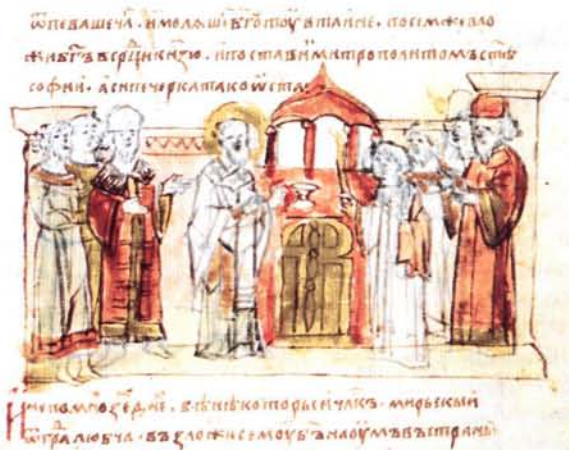 ѿпеваше чс҇а. и молѧш бг҃оу ту втаине. посемже вло
жи бг҃ъ в срд҇ци кнѧзю. и постави митрополитомъ с҃тѣ
софии. а си печерка тако ѡста
И не по мнозе дн҃е. бѣ нѣкоторыи чл҃къ. мирьскыи
ѿ гра҇д любча. възложи семоу б҃ъ на оумъ въ страны